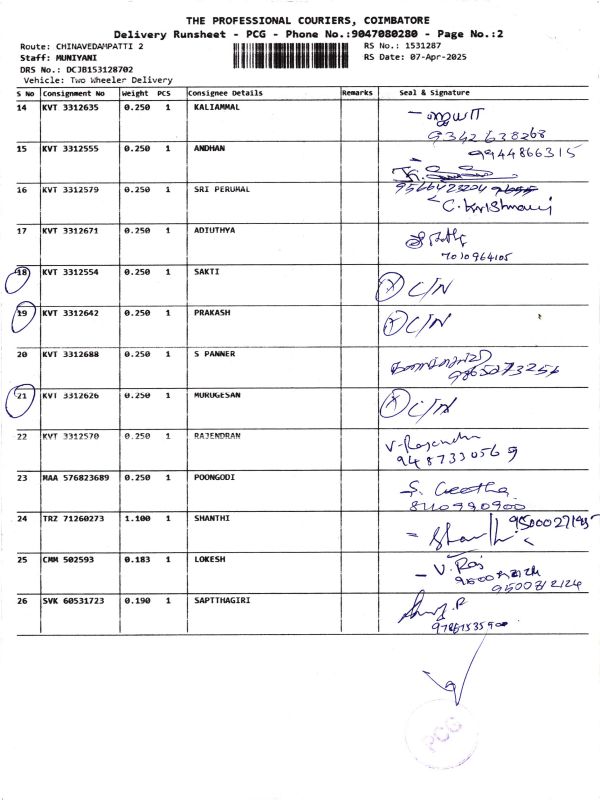 THE PROFESSIONAL COURIERS, COIMBATORE
Delivery Runsheet - PCG - Phone No.:9047080280 - Page No.:2
Route: CHINAVEDAMPATTI 2
RS No.: 1531287
Staff: MUNIYANI
RS Date: 07-Apr-2025
DRS No.: DCJB153128702
Vehicle: Two Wheeler Delivery
S No Consignment No Weight PCS Consignee Details Remarks Seal & Signature
14 KVT 3312635 0.250 1 KALIAMMAL
9342638268
15 KVT 3312555 0.250 1 ANDHAN 9944866315
16 KVT 3312579 0.250 1 SRI PERUMAL
C. Krishnaveni
17 KVT 3312671 0.250 1 ADIUTHYA
7010964105
18 KVT 3312554 0.250 1 SAKTI X C/N
19 KVT 3312642 0.250 1 PRAKASH X C/N
20 KVT 3312688 0.250 1 S PANNER
9865073256
21 KVT 3312626 0.250 1 MURUGESAN X C/N
22 KVT 3312570 0.250 1 RAJENDRAN V-Rajendra
9487330569
23 MAA 576823689 0.250 1 POONGODI S. Geetha
8110990900
24 TRZ 71260273 1.100 1 SHANTHI
25 CMM 502593 0.183 1 LOKESH V. Raj
9500812124
26 SVK 60531723 0.190 1 SAPTTHAGIRI
PCC